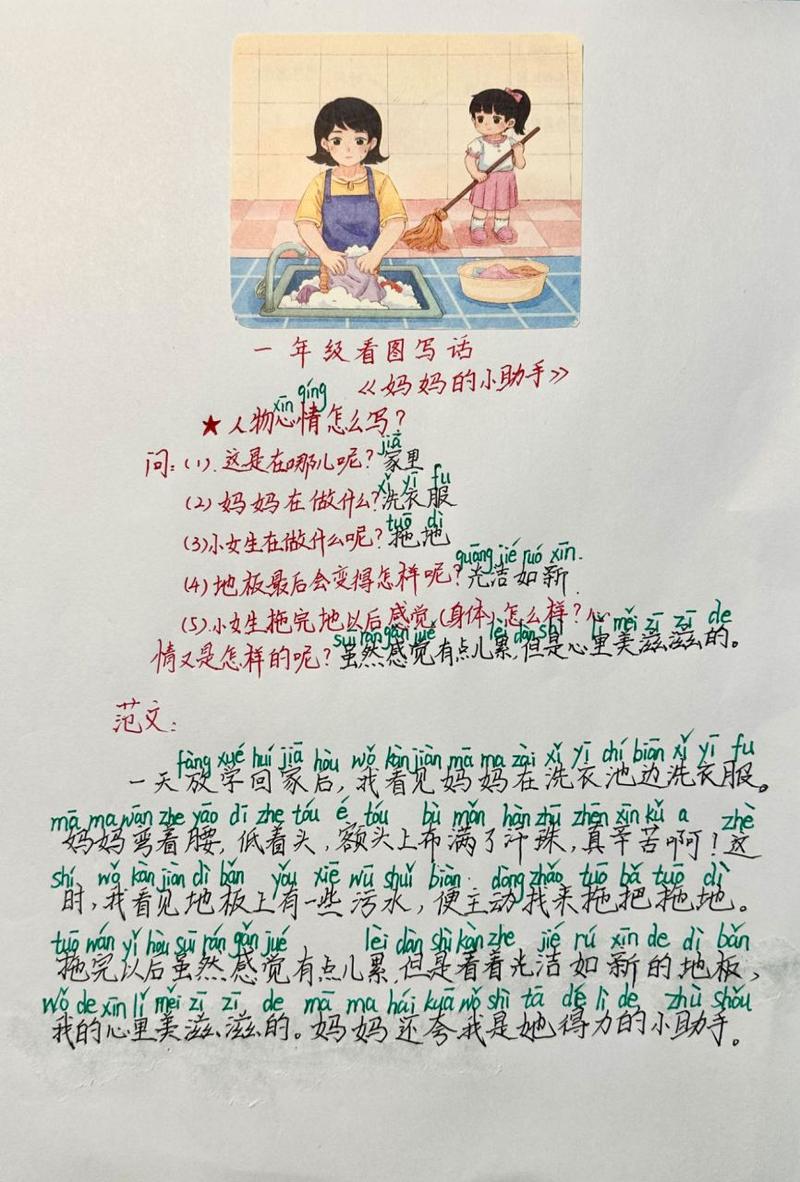 一年级看图写话
《妈妈的小助手》
xīn qíng
★人物心情怎么写？
jiā
问：(1).这是在哪儿呢？家里
xǐ yī fu
(2)妈妈在做什么？洗衣服
tuō dì
(3)小女生在做什么呢？拖地
guāng jié ruó xīn.
(4)地板最后会变得怎样呢？光洁如新.
(5).小女生拖完地以后感觉(身体)怎么样？心
suī rán gǎn jué lèi dàn shì lǐ měi zī zī de
情又是怎样的呢？虽然感觉有点儿累,但是心里美滋滋的。
范文：
fàng xué huí jiā hòu wǒ kàn jiàn mā ma zài xǐ yī chí biān xǐ yī fu
一天放学回家后,我看见妈妈在洗衣池边洗衣服。
mā ma wān zhe yāo dī zhe tóu é tóu bù mǎn hàn zhū zhēn xīn kǔ a zhè
妈妈弯着腰,低着头,额头上布满了汗珠,真辛苦啊！这
shí wǒ kàn jiàn dì bǎn yǒu xiē wū shuǐ biàn dòng zhǎo tuō bǎ tuō dì
时,我看见地板上有一些污水,便主动找来拖把拖地。
tuō wán yǐ hòu suī rán gǎn jué lèi dàn shì kàn zhe jié rú xīn de dì bǎn
拖完以后虽然感觉有点儿累,但是看着光洁如新的地板,
wǒ de xīn lǐ měi zī zī de mā ma hái kuā wǒ shì tā dé lì de zhù shǒu
我的心里美滋滋的。妈妈还夸我是她得力的小助手。